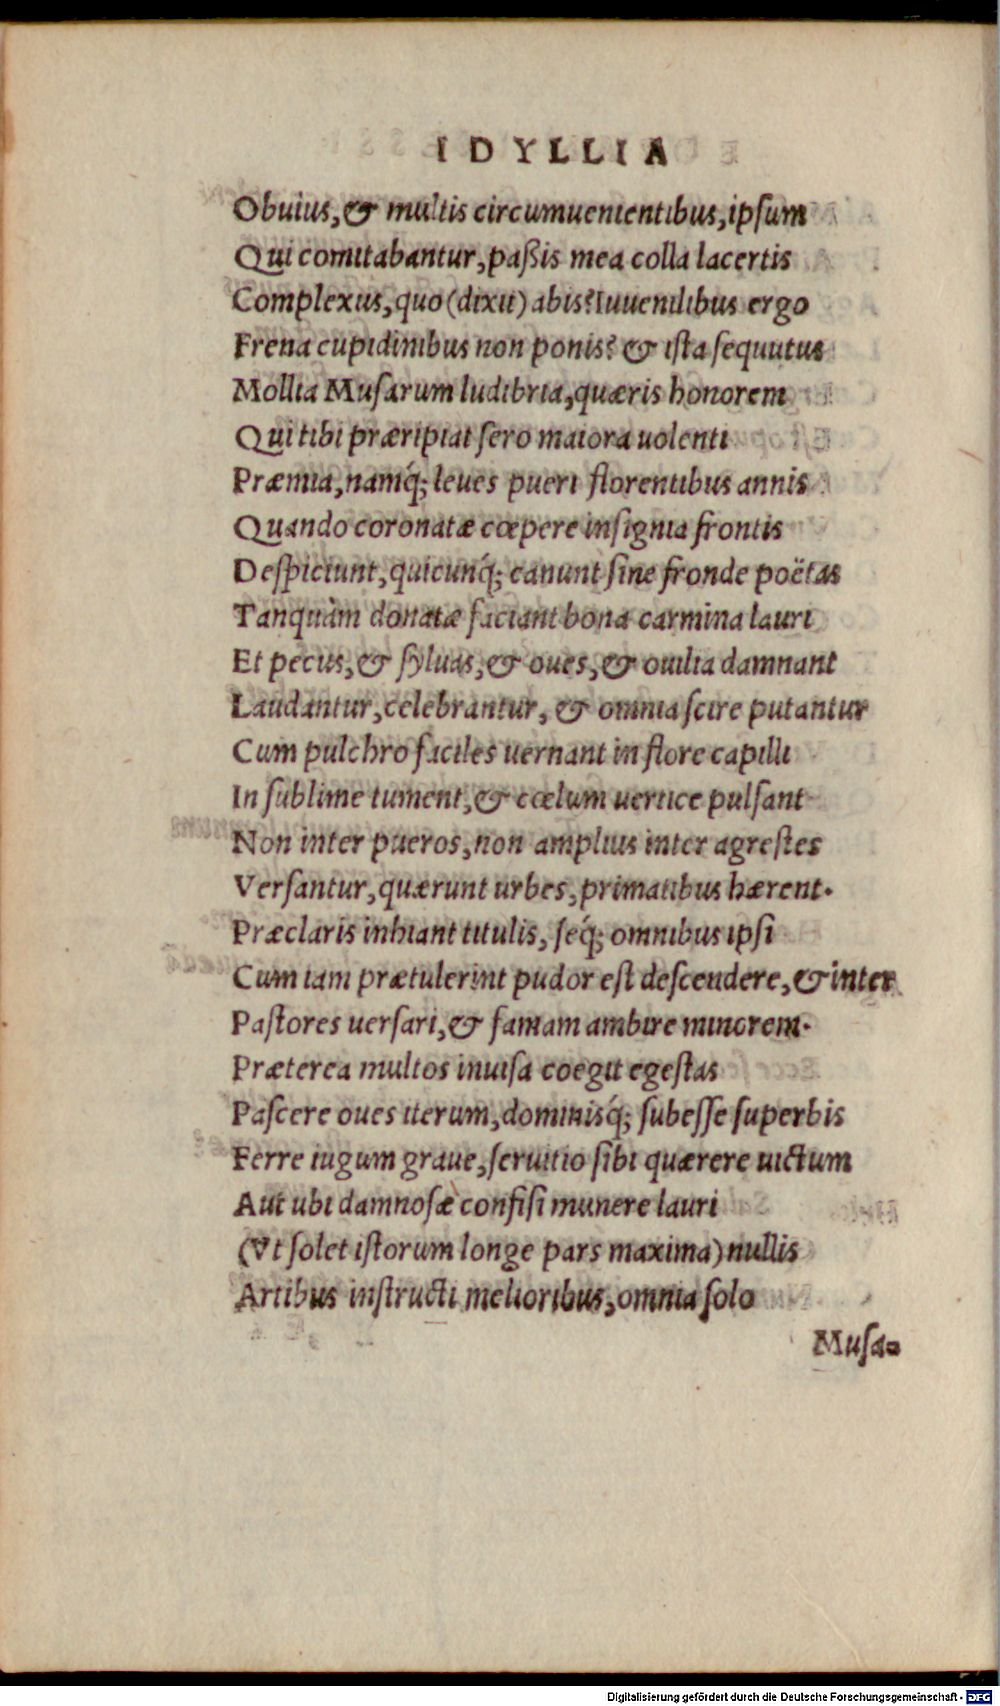 IDYLLIA
Obuius, & multis circumuenientibus, ipsum
Qui comitabantur, paßis mea colla lacertis
Complexus, quo (dixit) abis? Iuuenilibus ergo
Frena cupidinibus non ponis? & ista sequutus
Mollia Musarum ludibria, quæris honorem
Qui tibi præripiat sero maiora uolenti
Præmia, namq́; leues pueri florentibus annis
Quando coronatæ cœpere insignia frontis
Despiciunt, quicunq́; canunt sine fronde poëtas
Tanquàm donatæ faciant bona carmina lauri
Et pecus, & syluas, & oues, & ouilia damnant
Laudantur, celebrantur, & omnia scire putantur
Cum pulchro faciles uernant in flore capilli
In sublime tument, & cœlum uertice pulsant
Non inter pueros, non amplius inter agrestes
Versantur, quærunt urbes, primatibus hærent.
Præclaris inhiant titulis, seq́; omnibus ipsi
Cum iam prætulerint pudor est descendere, & inter
Pastores uersari, & famam ambire minorem.
Præterea multos inuisa coegit egestas
Pascere oues iterum, dominisq́; subesse superbis
Ferre iugum graue, seruitio sibi quærere uictum
Aut ubi damnosæ confisi munere lauri
(Vt solet istorum longe pars maxima) nullis
Artibus instructi melioribus, omnia solo
Musa-
Digitalisierung gefördert durch die Deutsche Forschungsgemeinschaft - DFG